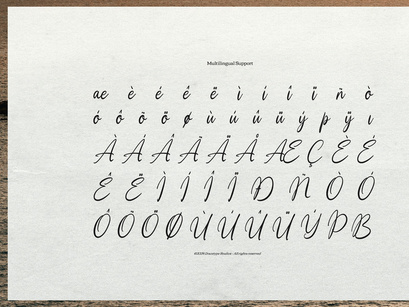 Multilingual Support
æ è é ê ë ì í î ï ñ ò
ó ô õ ö ø ù ú û ü ý þ ÿ ı
À Á Â Ã Ä Å Æ Ç È É
Ê Ë Ì Í Î Ï Ð Ñ Ò Ó
Ô Õ Ö Ø Ù Ú Û Ü Ý Þ ß